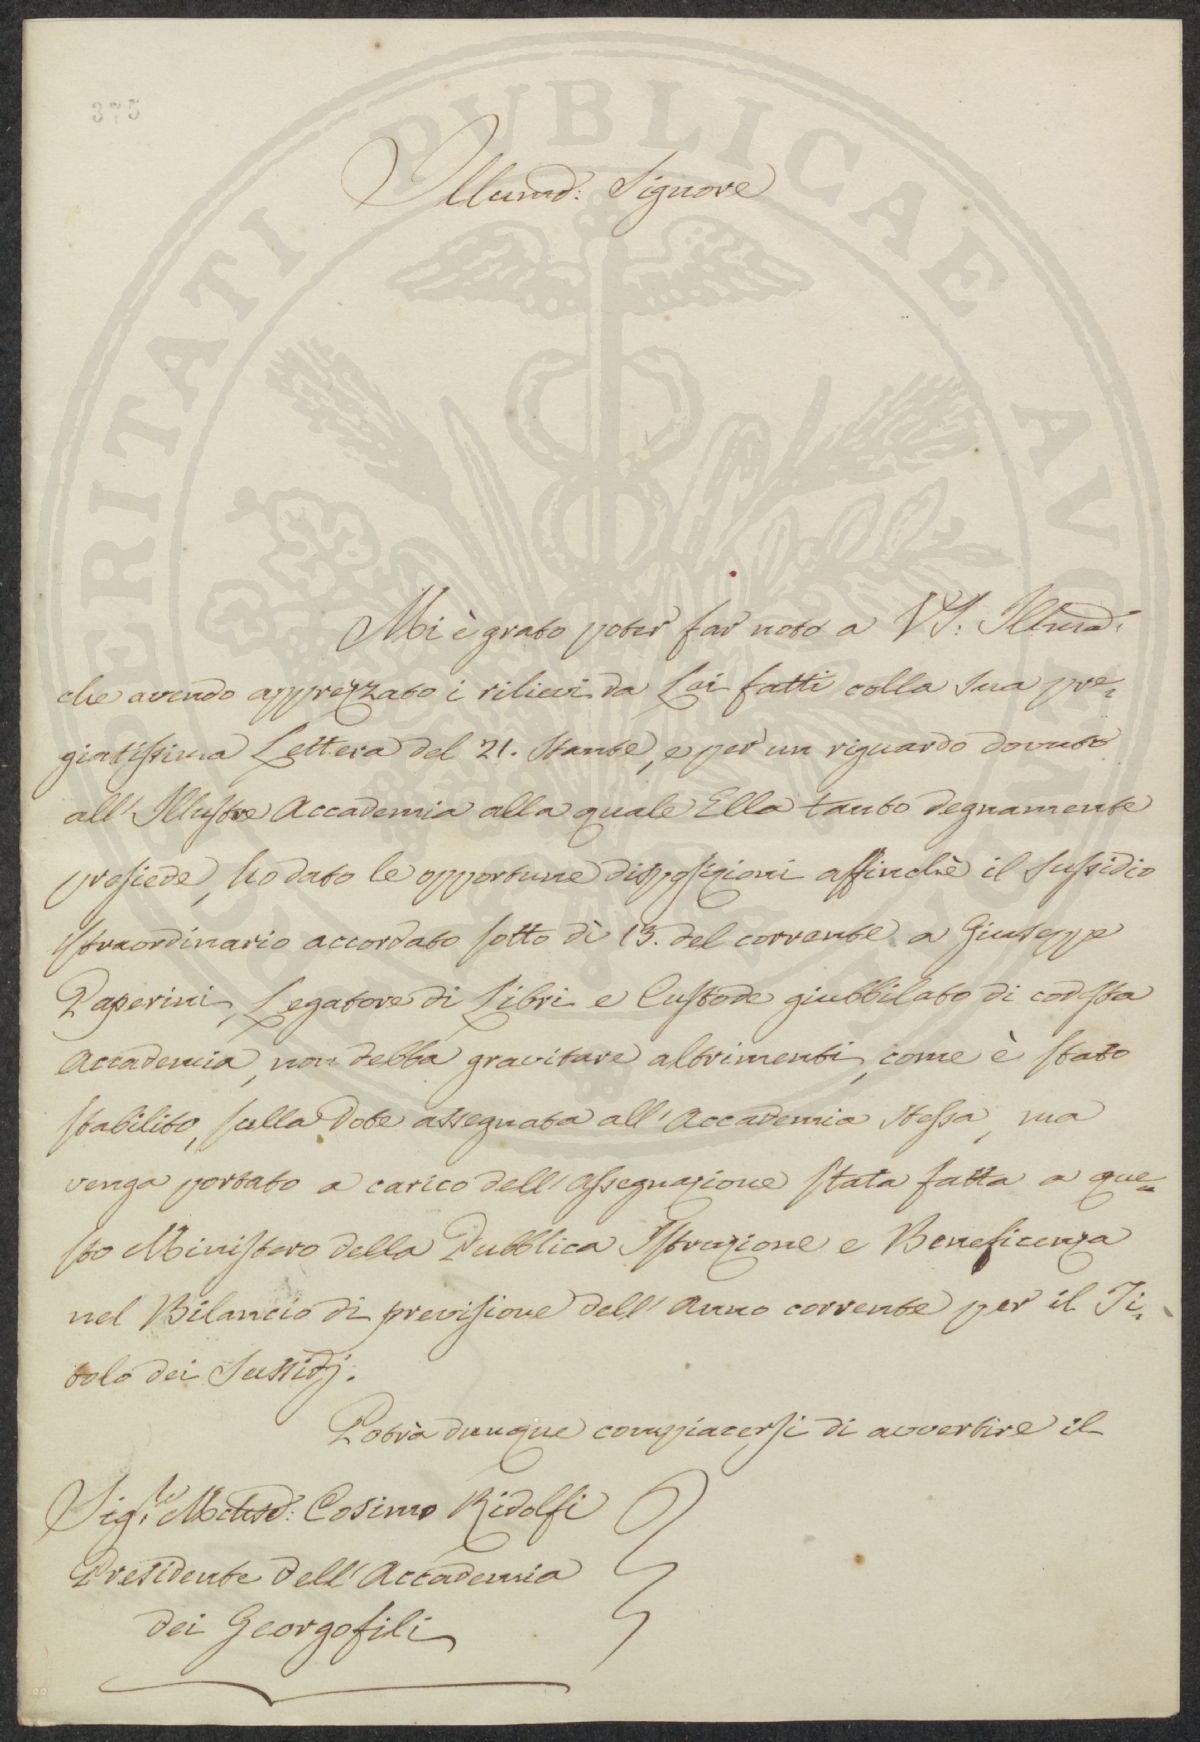 375
Illumo: Signore
Mi è grato poter far noto a VS: Illma:
che avendo apprezzato i rilievi da Lei fatti colla sua pre-
giatissima Lettera del 21. stante, e per un riguardo dovuto
all'Illustre Accademia alla quale Ella tanto degnamente
presiede, ho dato le opportune disposizioni affinchè il sussidio
straordinario accordato sotto dì 13. del corrente a Giuseppe
Paperini, Legatore di Libri e Custode giubbilato di codesta
Accademia, non debba gravitare altrimenti, come è stato
stabilito, sulla Dote assegnata all'Accademia stessa, ma
venga portato a carico dell'Assegnazione stata fatta a que-
sto Ministero della Pubblica Istruzione e Beneficenza
nel Bilancio di previsione dell'Anno corrente per il Ti-
tolo dei Sussidj.
Potrà dunque compiacersi di avvertire il
Sig.re Cosimo Ridolfi
Presidente dell'Accademia
dei Georgofili
PROSPERITATI PUBLICAE AVGENDAE